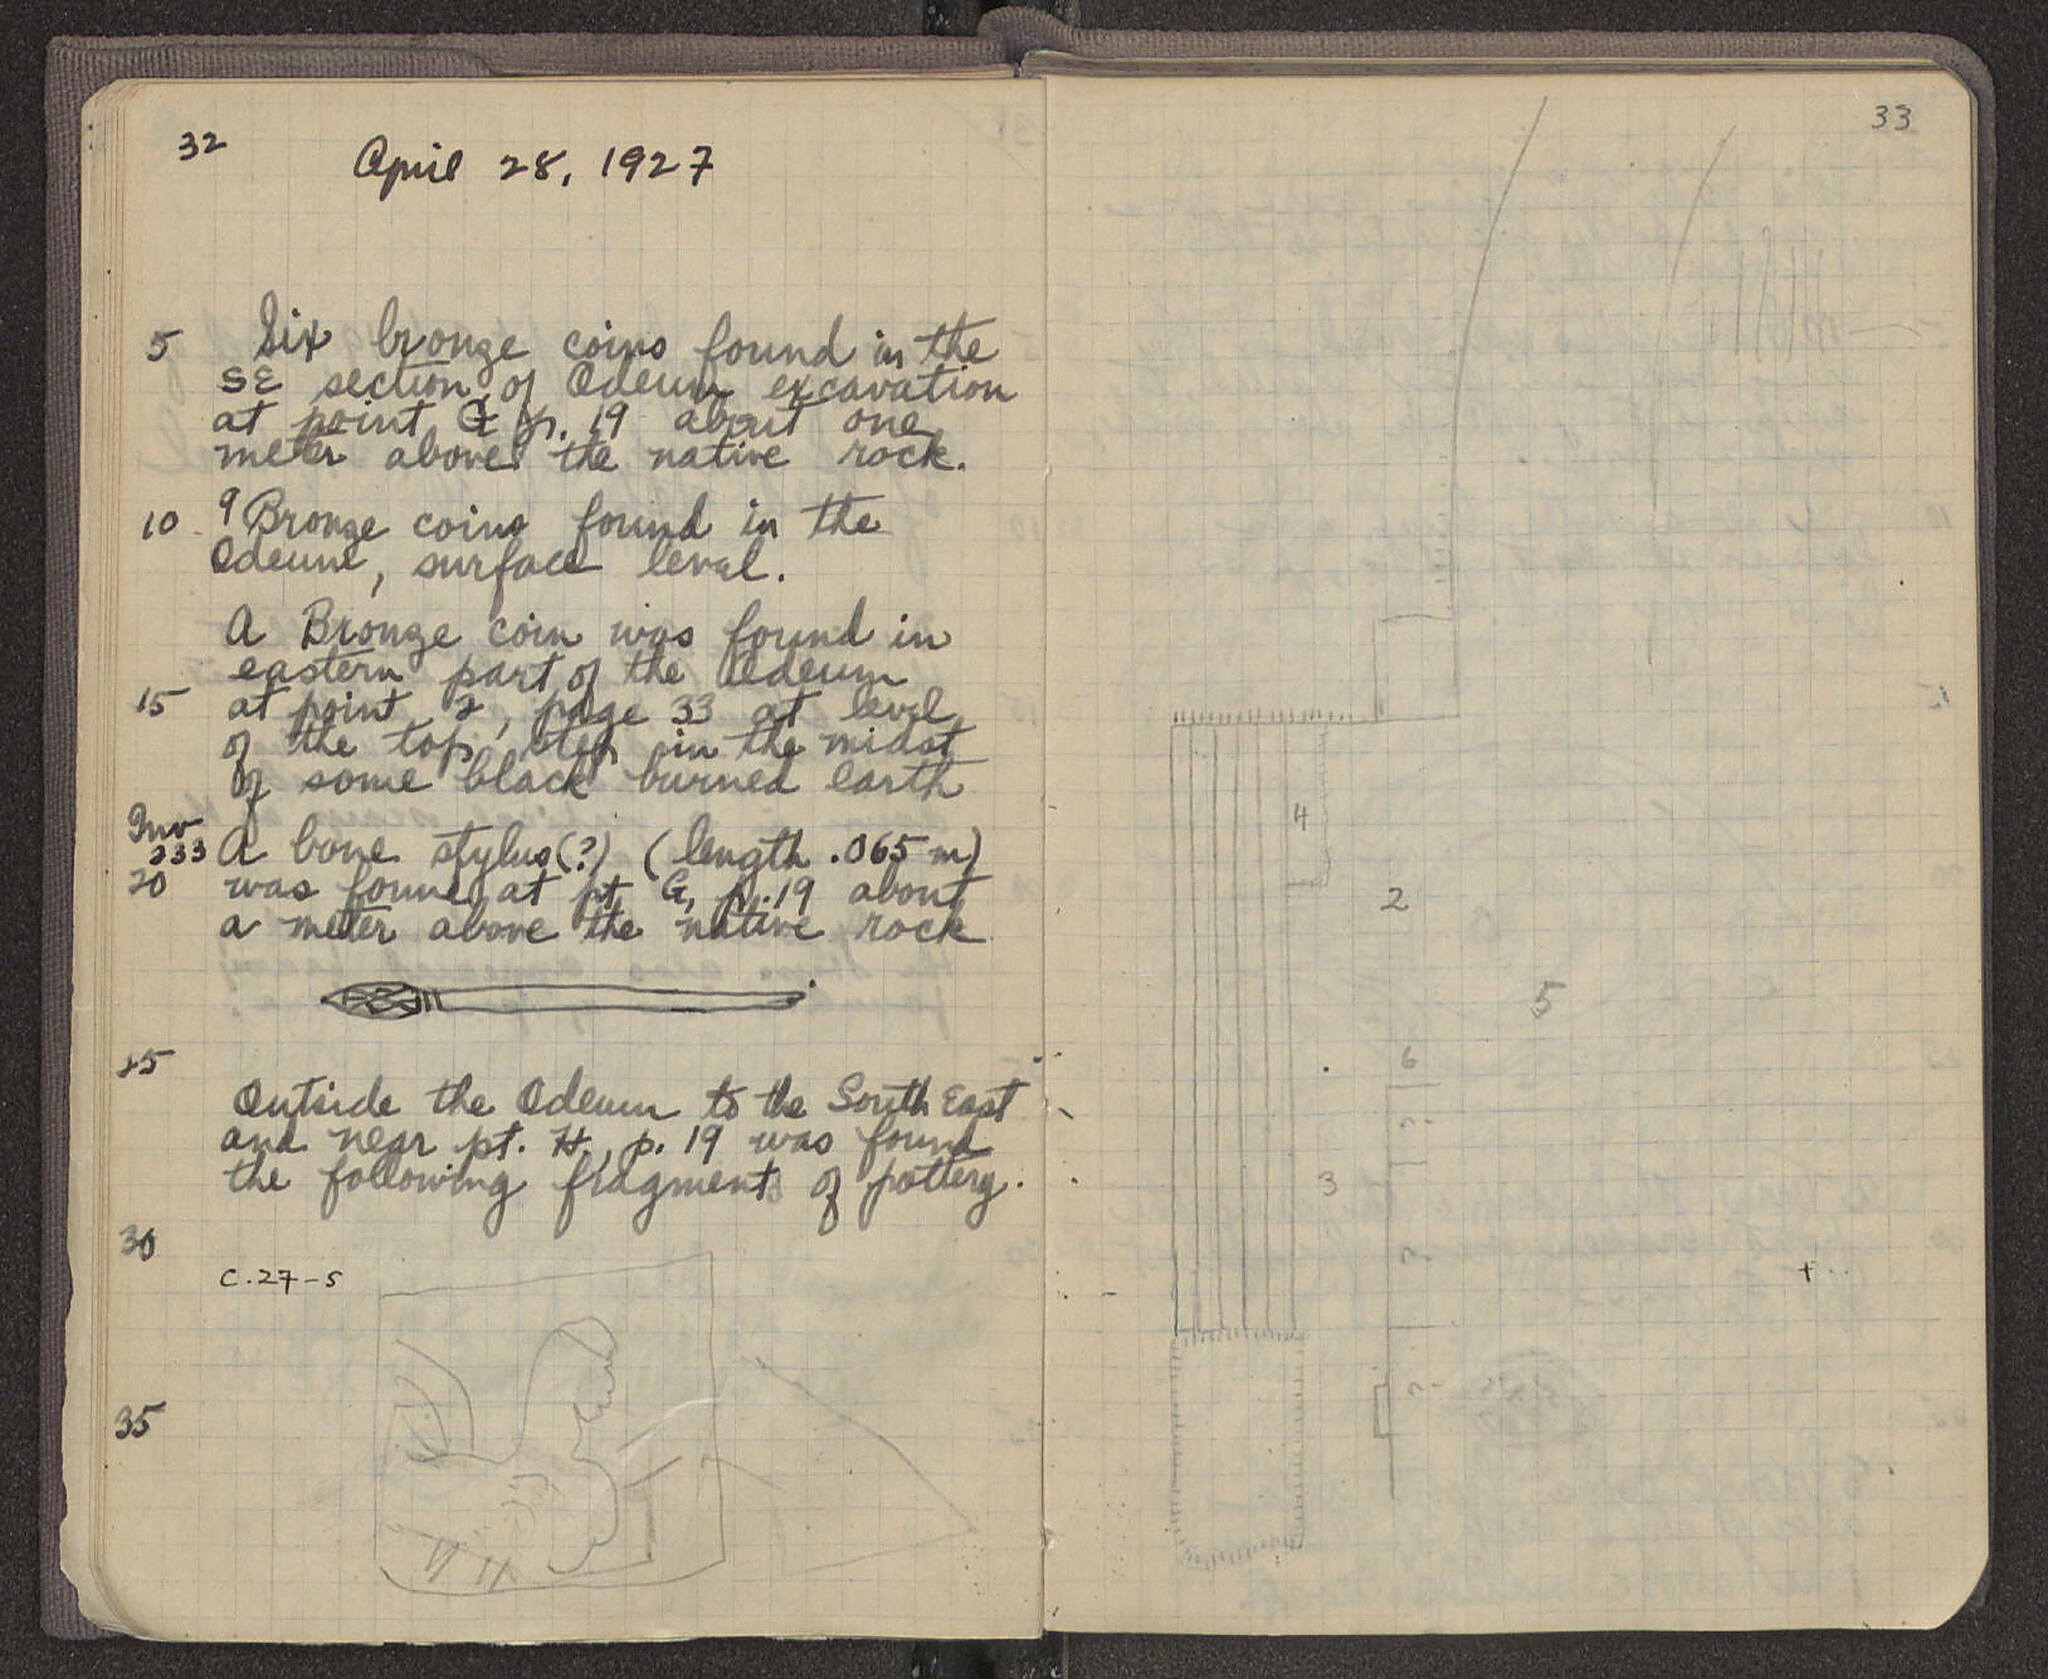 32
April 28, 1927
5 Six bronze coins found in the
SE section of Odeum excavation
at point G p. 19 about one
meter above the native rock.
10 9 Bronze coins found in the
Odeum, surface level.
A Bronze coin was found in
eastern part of the Odeum
15 at point 2, page 33 at level
of the top step in the midst
of some black burned earth
Inv
233 A bone stylus(?) (length .065 m)
20 was found at pt G, p. 19 about
a meter above the native rock
25
Outside the Odeum to the South East
and near pt. H, p. 19 was found
the following fragments of pottery.
30
C.27-5
35
33
4
2
5
6
3